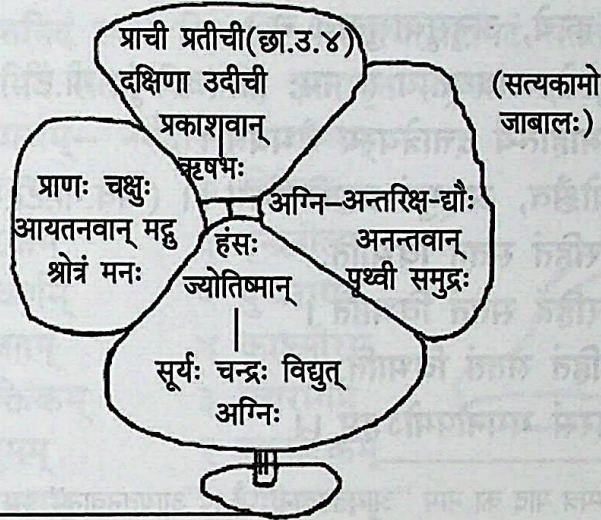 प्राची प्रतीची(छा.उ.४)
दक्षिणा उदीची
प्रकाशवान्
ऋषभः
(सत्यकामो
जाबालः)
प्राणः चक्षुः
आयतनवान् मद्गु
श्रोत्रं मनः
अग्नि–अन्तरिक्ष-द्यौः
अनन्तवान्
पृथ्वी समुद्रः
हंसः
ज्योतिष्मान्
सूर्यः चन्द्रः विद्युत्
अग्निः